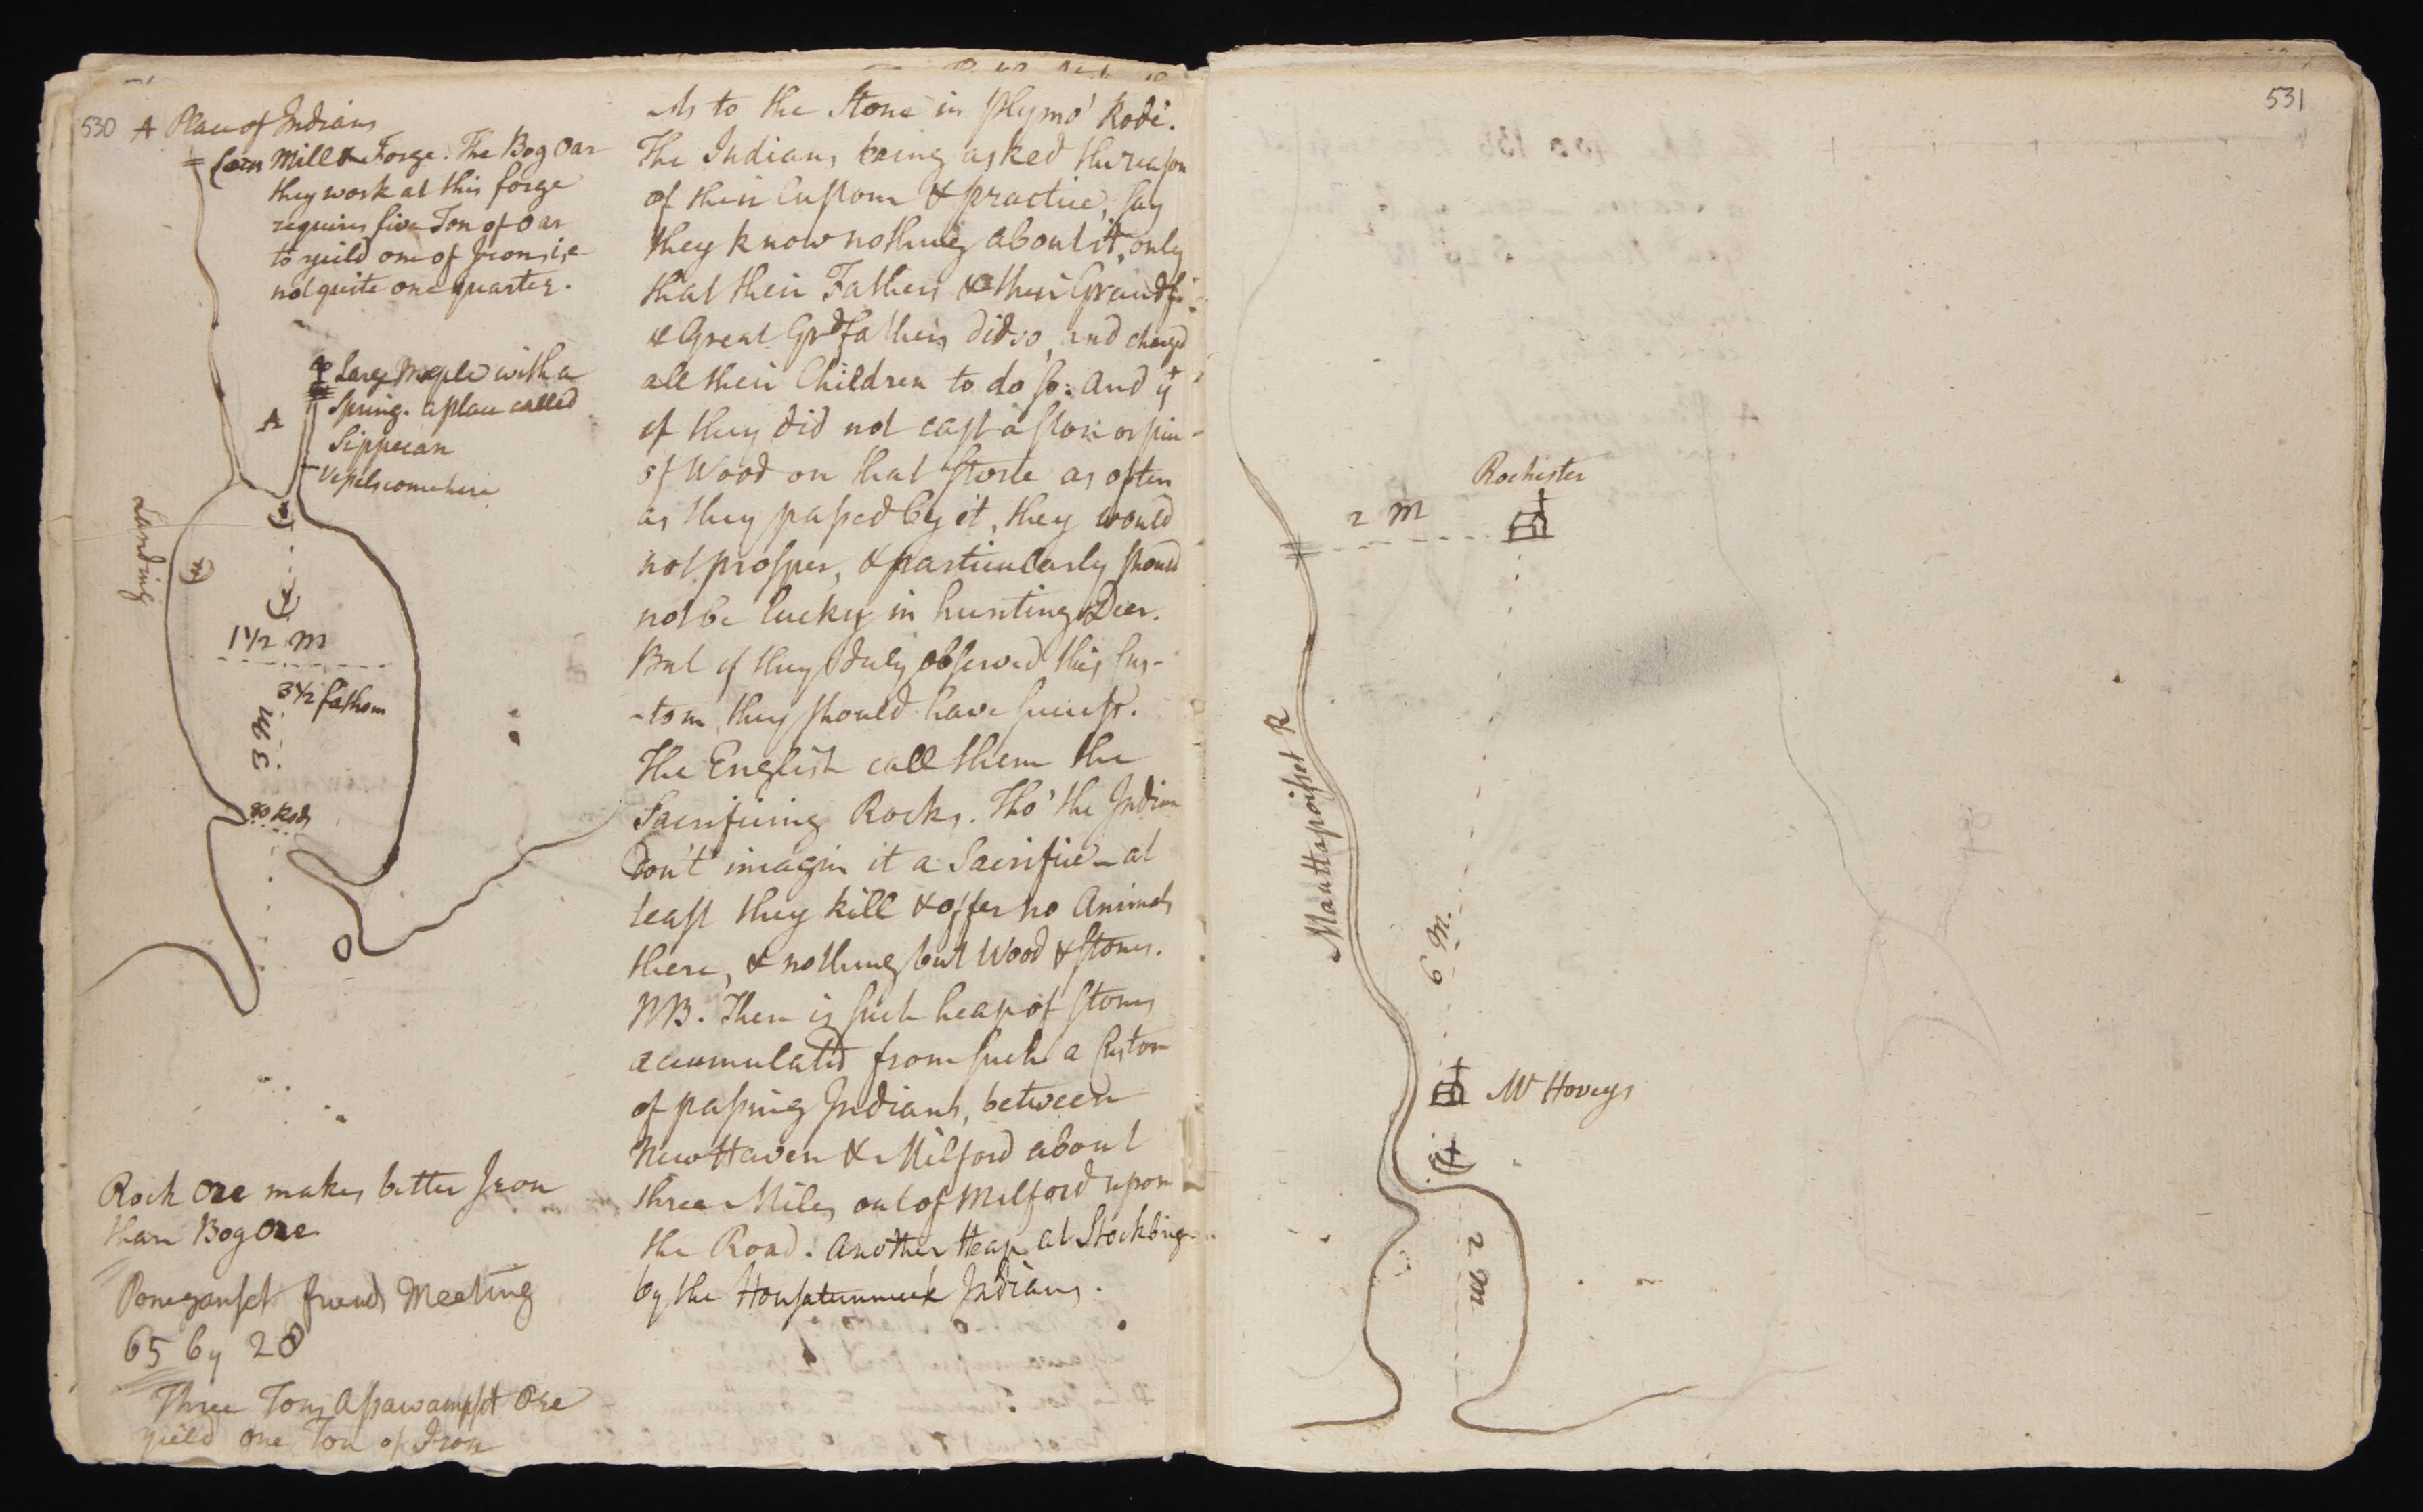 530
A Place of Indians
Corn Mill & Forge. The Bog Oar
they work at this forge
requires five Ton of Oar
to yeild one of Iron, i.e.
not quite one quarter.
Large Maple with a
Spring. a place called
Sippecan
Vessels come here
A
Landing
1 1/2 m
3 1/2 fathom
3 M
80 Rods
Rock Ore makes better Iron
than Bog Ore
Poneganset friends Meeting
65 by 28
Three Tons Assawampset Ore
yield one Ton of Iron
As to the Stone in Plymo' Rode.
The Indians being asked the reason
of their Custom & practice, say
they know nothing about it, only
that their Fathers & their Grandfa
& Great Grdfathers did so, and charged
all their Children to do so: and yt
if they did not cast a stone or
of Wood on that Stone as often
as they passed by it, they would
not prosper, & particularly should
not be lucky in hunting Deer.
But if they duly observed this Cus-
-tom, they should have success.
The English call them the
Sacrificing Rocks. Tho' the Indian
don't imagin it a Sacrifice – at
least they kill & offer no Animals
there, & nothing but Wood & Stones.
NB. There is such heap of Stones
accumulated from such a Custom
of passing Indians, between
New Haven & Milford about
three Miles out of Milford upon
the Road. Another Heap at Stockbrige
by the Housatunnuck Indians.
531
Rochester
2 M
Mauttapoisset R
6 M.
Mr Hoveys
2 m